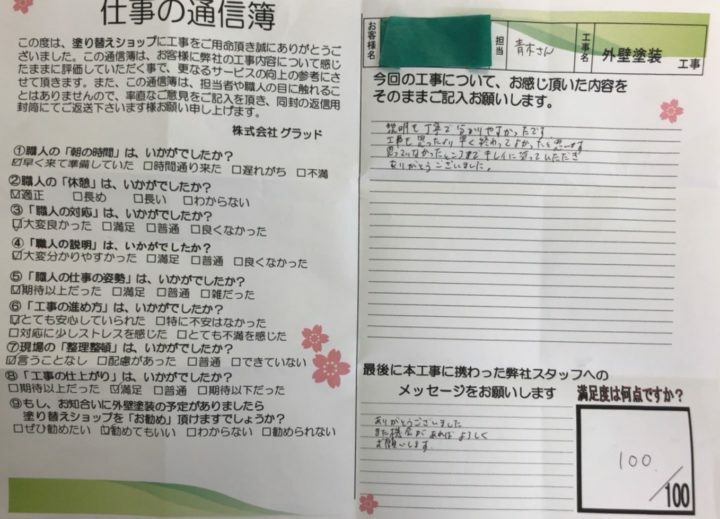 仕事の通信簿
この度は、塗り替えショップに工事をご用命頂き誠にありがとうご
ざいました。この通信簿は、お客様に弊社の工事内容について感じ
たままに評価していただく事で、更なるサービスの向上の参考にさ
せて頂きます。また、この通信簿は、担当者や職人の目に触れるこ
とはありませんので、率直なご意見をご記入を頂き、同封の返信用
封筒にてご返送下さいます様お願い申し上げます。
株式会社 グラッド
①職人の「朝の時間」は、いかがでしたか?
☑早く来て準備していた □時間通り来た □遅れがち □不満
②職人の「休憩」は、いかがでしたか?
☑適正 □長め □長い □わからない
③「職人の対応」は、いかがでしたか?
☑大変良かった □満足 □普通 □良くなかった
④「職人の説明」は、いかがでしたか?
☑大変分かりやすかった □満足 □普通 □良くなかった
⑤「職人の仕事の姿勢」は、いかがでしたか?
☑期待以上だった □満足 □普通 □雑だった
⑥「工事の進め方」は、いかがでしたか?
☑とても安心していられた □特に不安はなかった
□対応に少しストレスを感じた □とても不満を感じた
⑦現場の「整理整頓」は、いかがでしたか?
☑言うことなし □配慮があった □普通 □できていない
⑧「工事の仕上がり」は、いかがでしたか?
□期待以上だった ☑満足 □普通 □期待以下だった
⑨もし、お知合いに外壁塗装の予定がありましたら
塗り替えショップを「お勧め」頂けますでしょうか?
□ぜひ勧めたい ☑勧めてもいい □わからない □勧められない
お客様名
担当 青木さん
工事名 外壁塗装 工事
今回の工事について、お感じ頂いた内容を
そのままご記入お願いします。
説明も丁寧で分かりやすかったです
工事も思ったより早く終わってよかったと思います
思っていなかったところまでキレイに塗っていただき
ありがとうございました。
最後に本工事に携わった弊社スタッフへの
メッセージをお願いします
ありがとうございました
また機会があればよろしく
お願いします
満足度は何点ですか?
100
/100